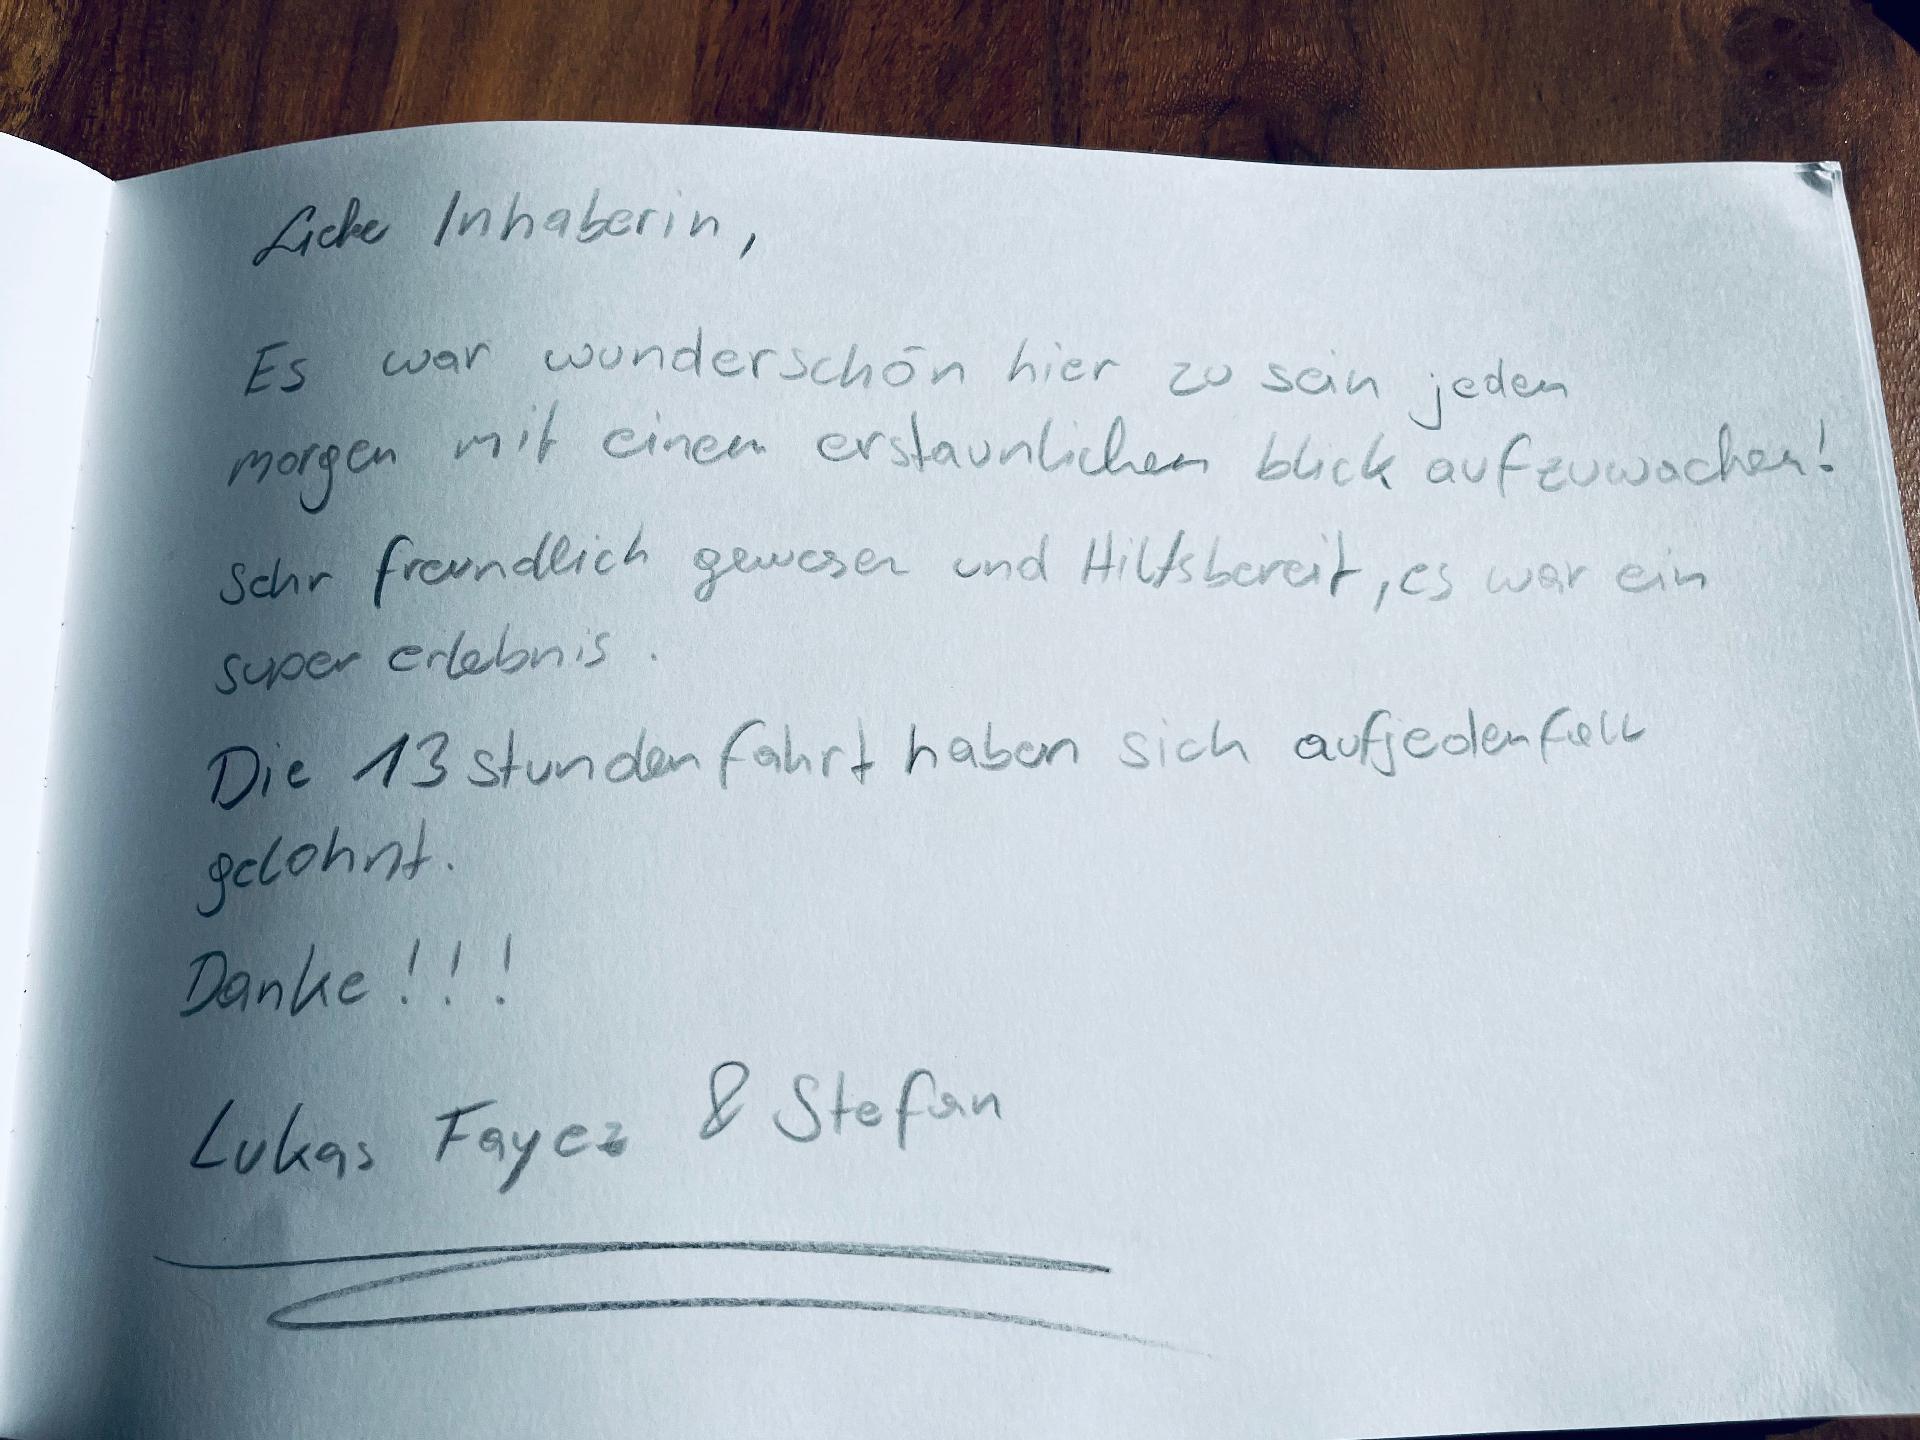 Liebe Inhaberin,
Es war wunderschön hier zu sein jeden
morgen mit einem erstaunlichen blick aufzuwachen!
Sehr freundlich gewesen und Hilfsbereit, es war ein
super erlebnis.
Die 13 stunden fahrt haben sich aufjedenfall
gelohnt.
Danke!!!
Lukas Fayez & Stefan